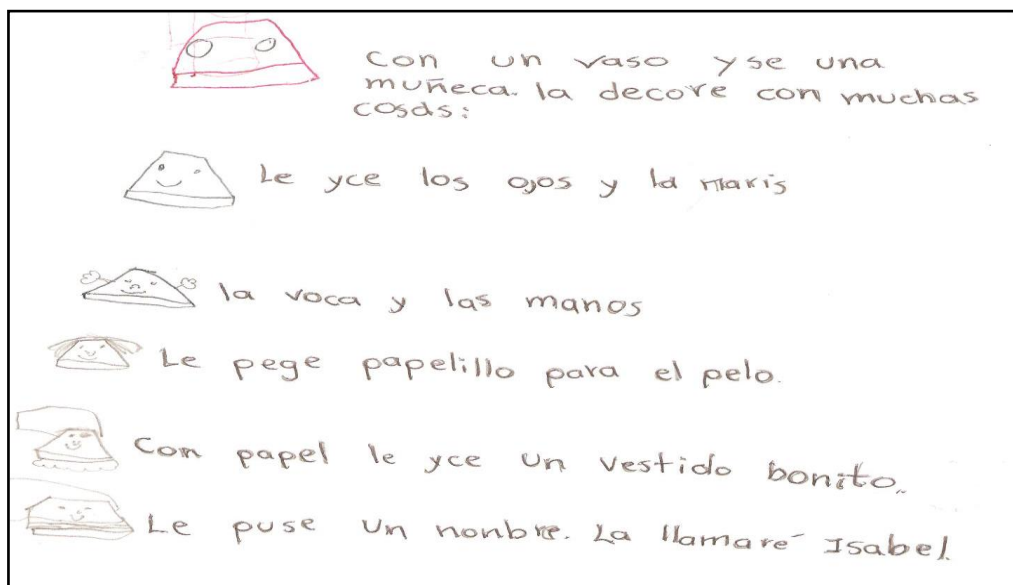 Con un vaso yse una
muñeca. la decore con muchas
cosas:
Le yce los ojos y la naris
la voca y las manos
Le pege papelillo para el pelo.
Con papel le yce un vestido bonito.
Le puse un nonbre. La llamaré Isabel.